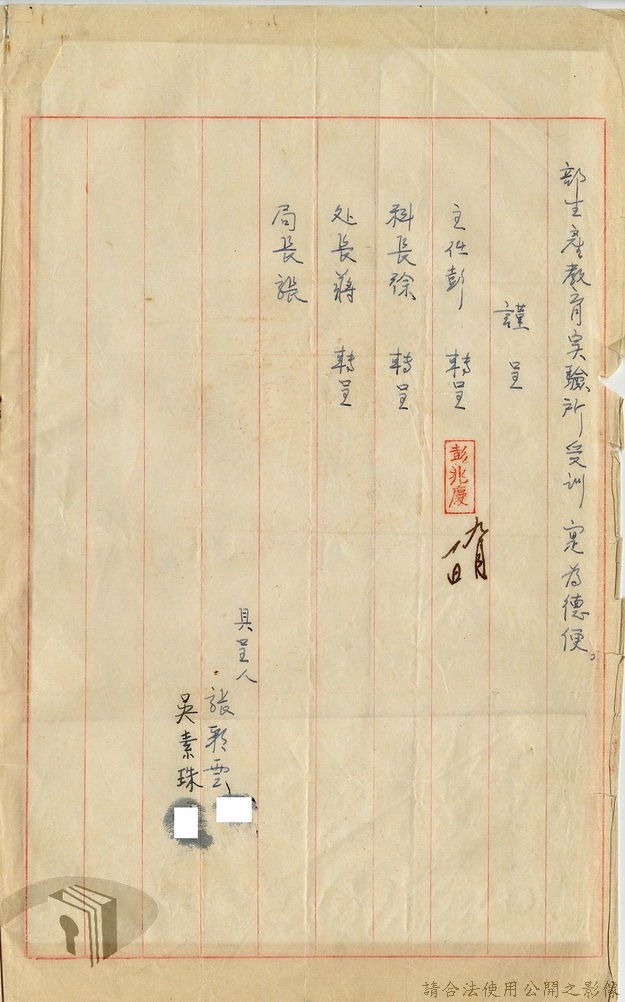 部生產教育实驗所受訓 寔為德便。
謹呈
主任彭 轉呈
彭兆慶
九月
日
科長徐 轉呈
处長蔣 轉呈
局長張
具呈人
張彩雲
吳素珠
請合法使用公開之影像